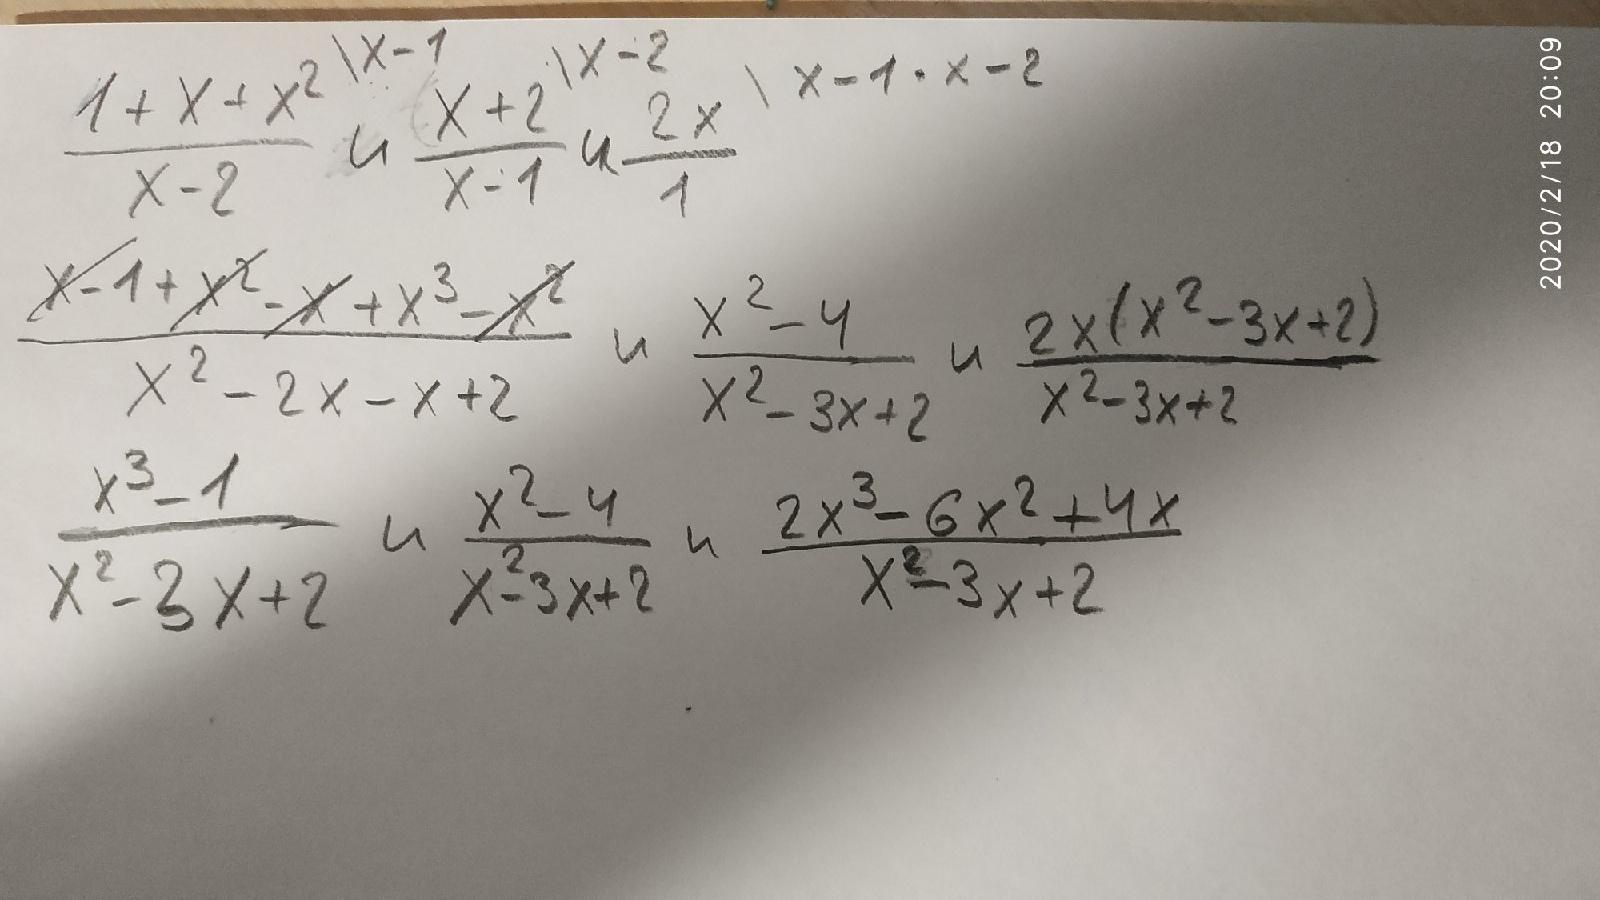 1+x+x² \x-1 / x-2 и x+2 \x-2 / x-1 и 2x / 1 \x-1·x-2
x-1+x²-x+x³-x² / x²-2x-x+2 и x²-4 / x²-3x+2 и 2x(x²-3x+2) / x²-3x+2
x³-1 / x²-3x+2 и x²-4 / x²-3x+2 и 2x³-6x²+4x / x²-3x+2
2020/2/18 20:09